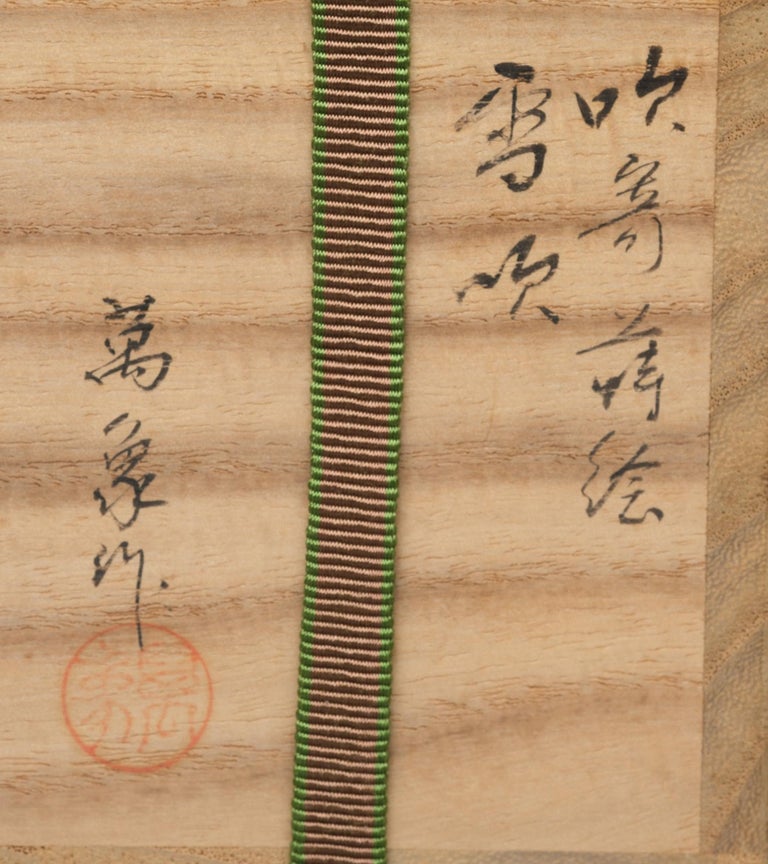 吹寄蒔絵
雪吹
萬象作